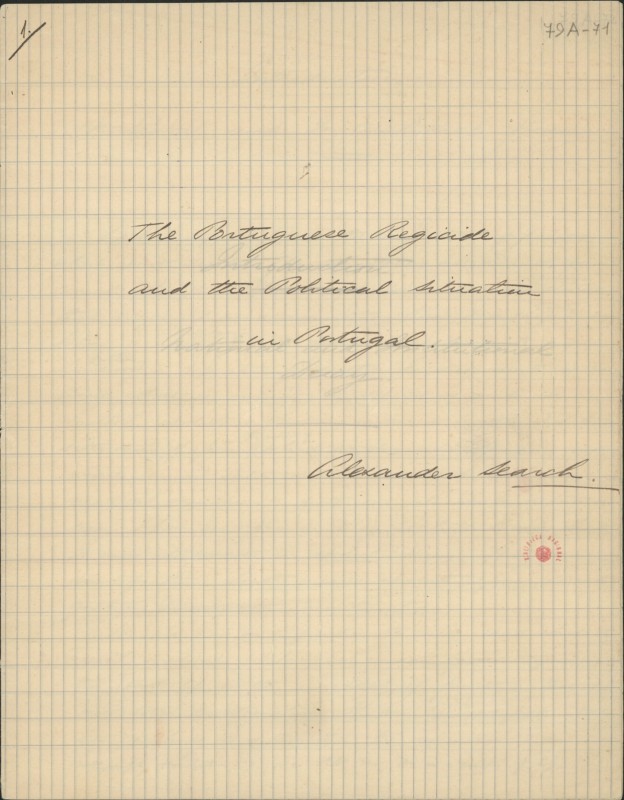 1.
79A-71
The Portuguese Regicide
and the Political situation
in Portugal.
Alexander Search.